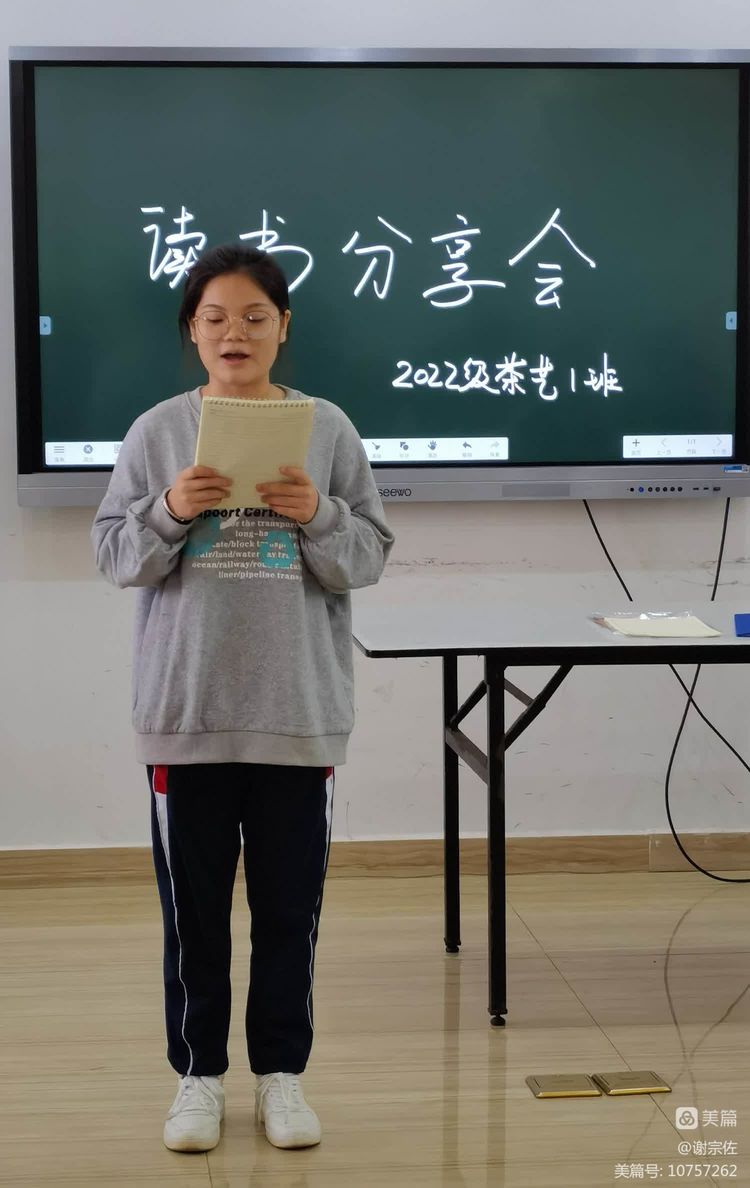 读书分享会
2022级茶艺1班
1/1
seewo
for the transport
long-ha
air/land/water
ocean/railway/ro
liner/pipeline trans
美篇
@谢宗佐
美篇号: 10757262